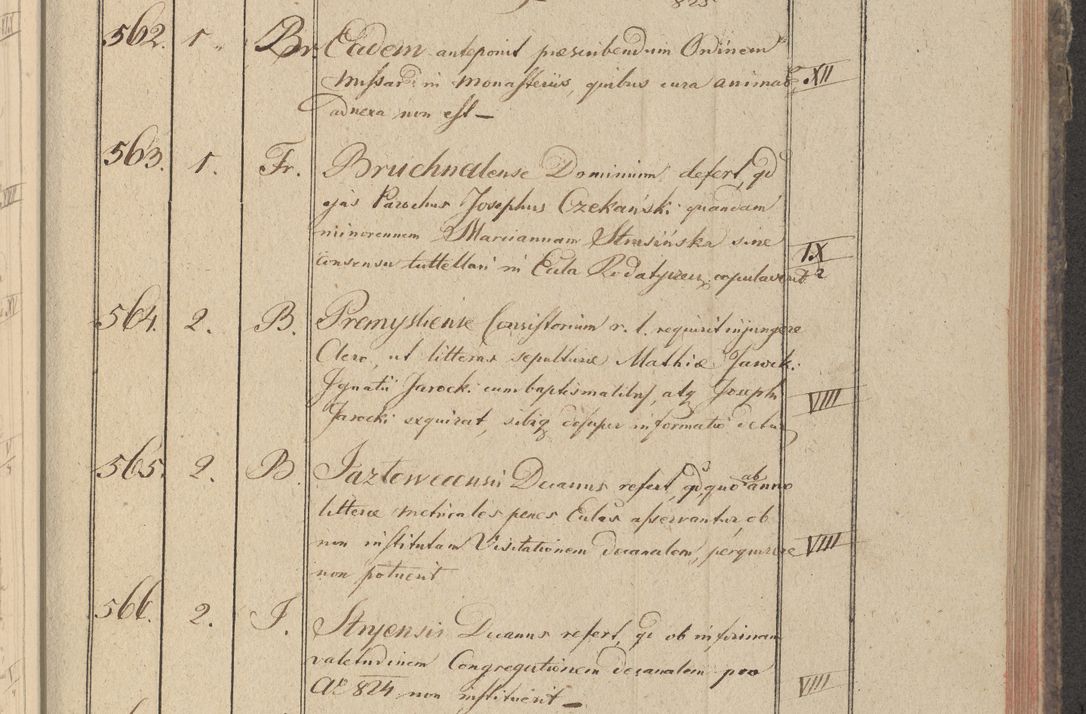 825
562. 1. Br. Eadem anteponit præscribendum Ordinem
Missar: in Monasteriis, quibus cura animar: XII
adnexa non est —
563. 1. Fr. Bruchnalense Dominium defert, qd
ejus Parochus Josephus Czekański quandam
minorennem Mariannam Strusińska sine IX
consensu tuttellari in Eccla Rodatycen: copulaverit
564. 2. B. Premysliense Consistorium r. l. requirit injungere
Clero, ut litteras sepulturæ Mathiæ Jarocki
Ignatii Jarocki cum baptismalibus, atq Joseph VIII
Jarocki exquirat, sibiq desuper informatio detur
565. 2. B. Jazlowecensis Decanus refert, qd, quo ab anno
litteræ metricales penes Eclas asservantur, ob
non institutam Visitationem decanalem, perquirere VIII
non potuerit
566. 2. J. Stryensis Decanus refert, qd ob infirmam
valetudinem Congregationem decanalem pro
Aº 824 non instituerit — VIII